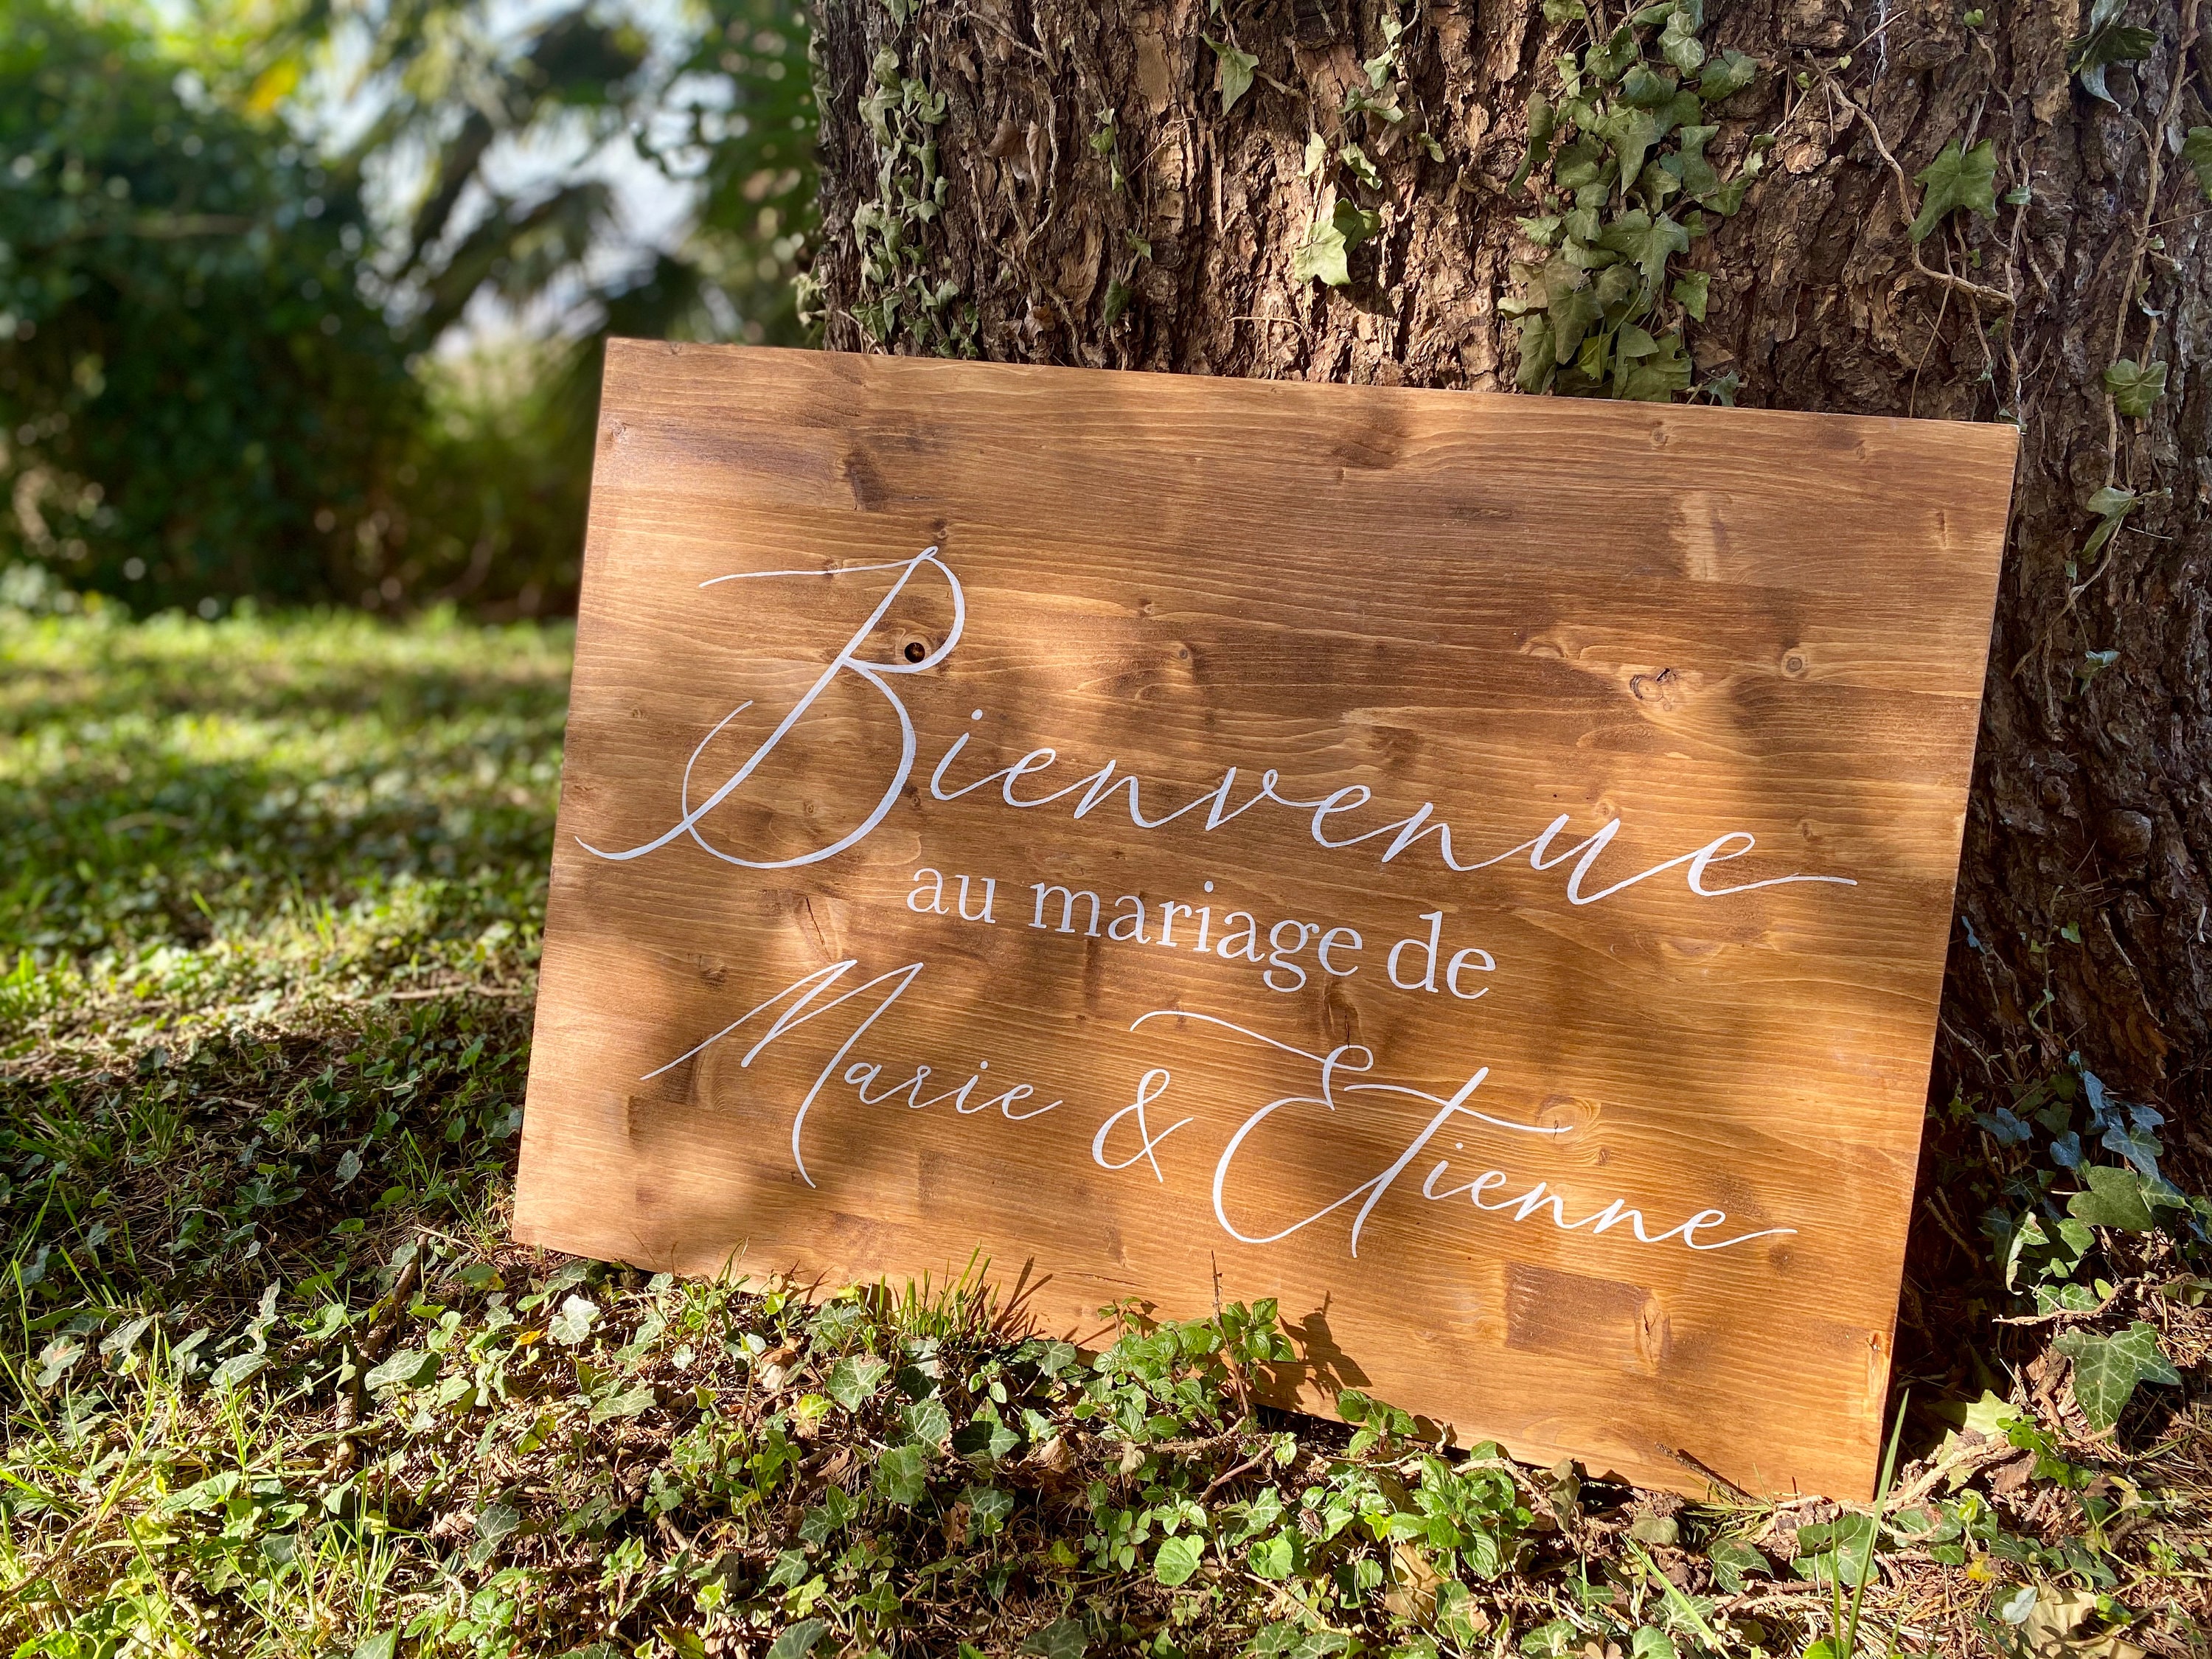 Bienvenue
au mariage de
Marie & Etienne